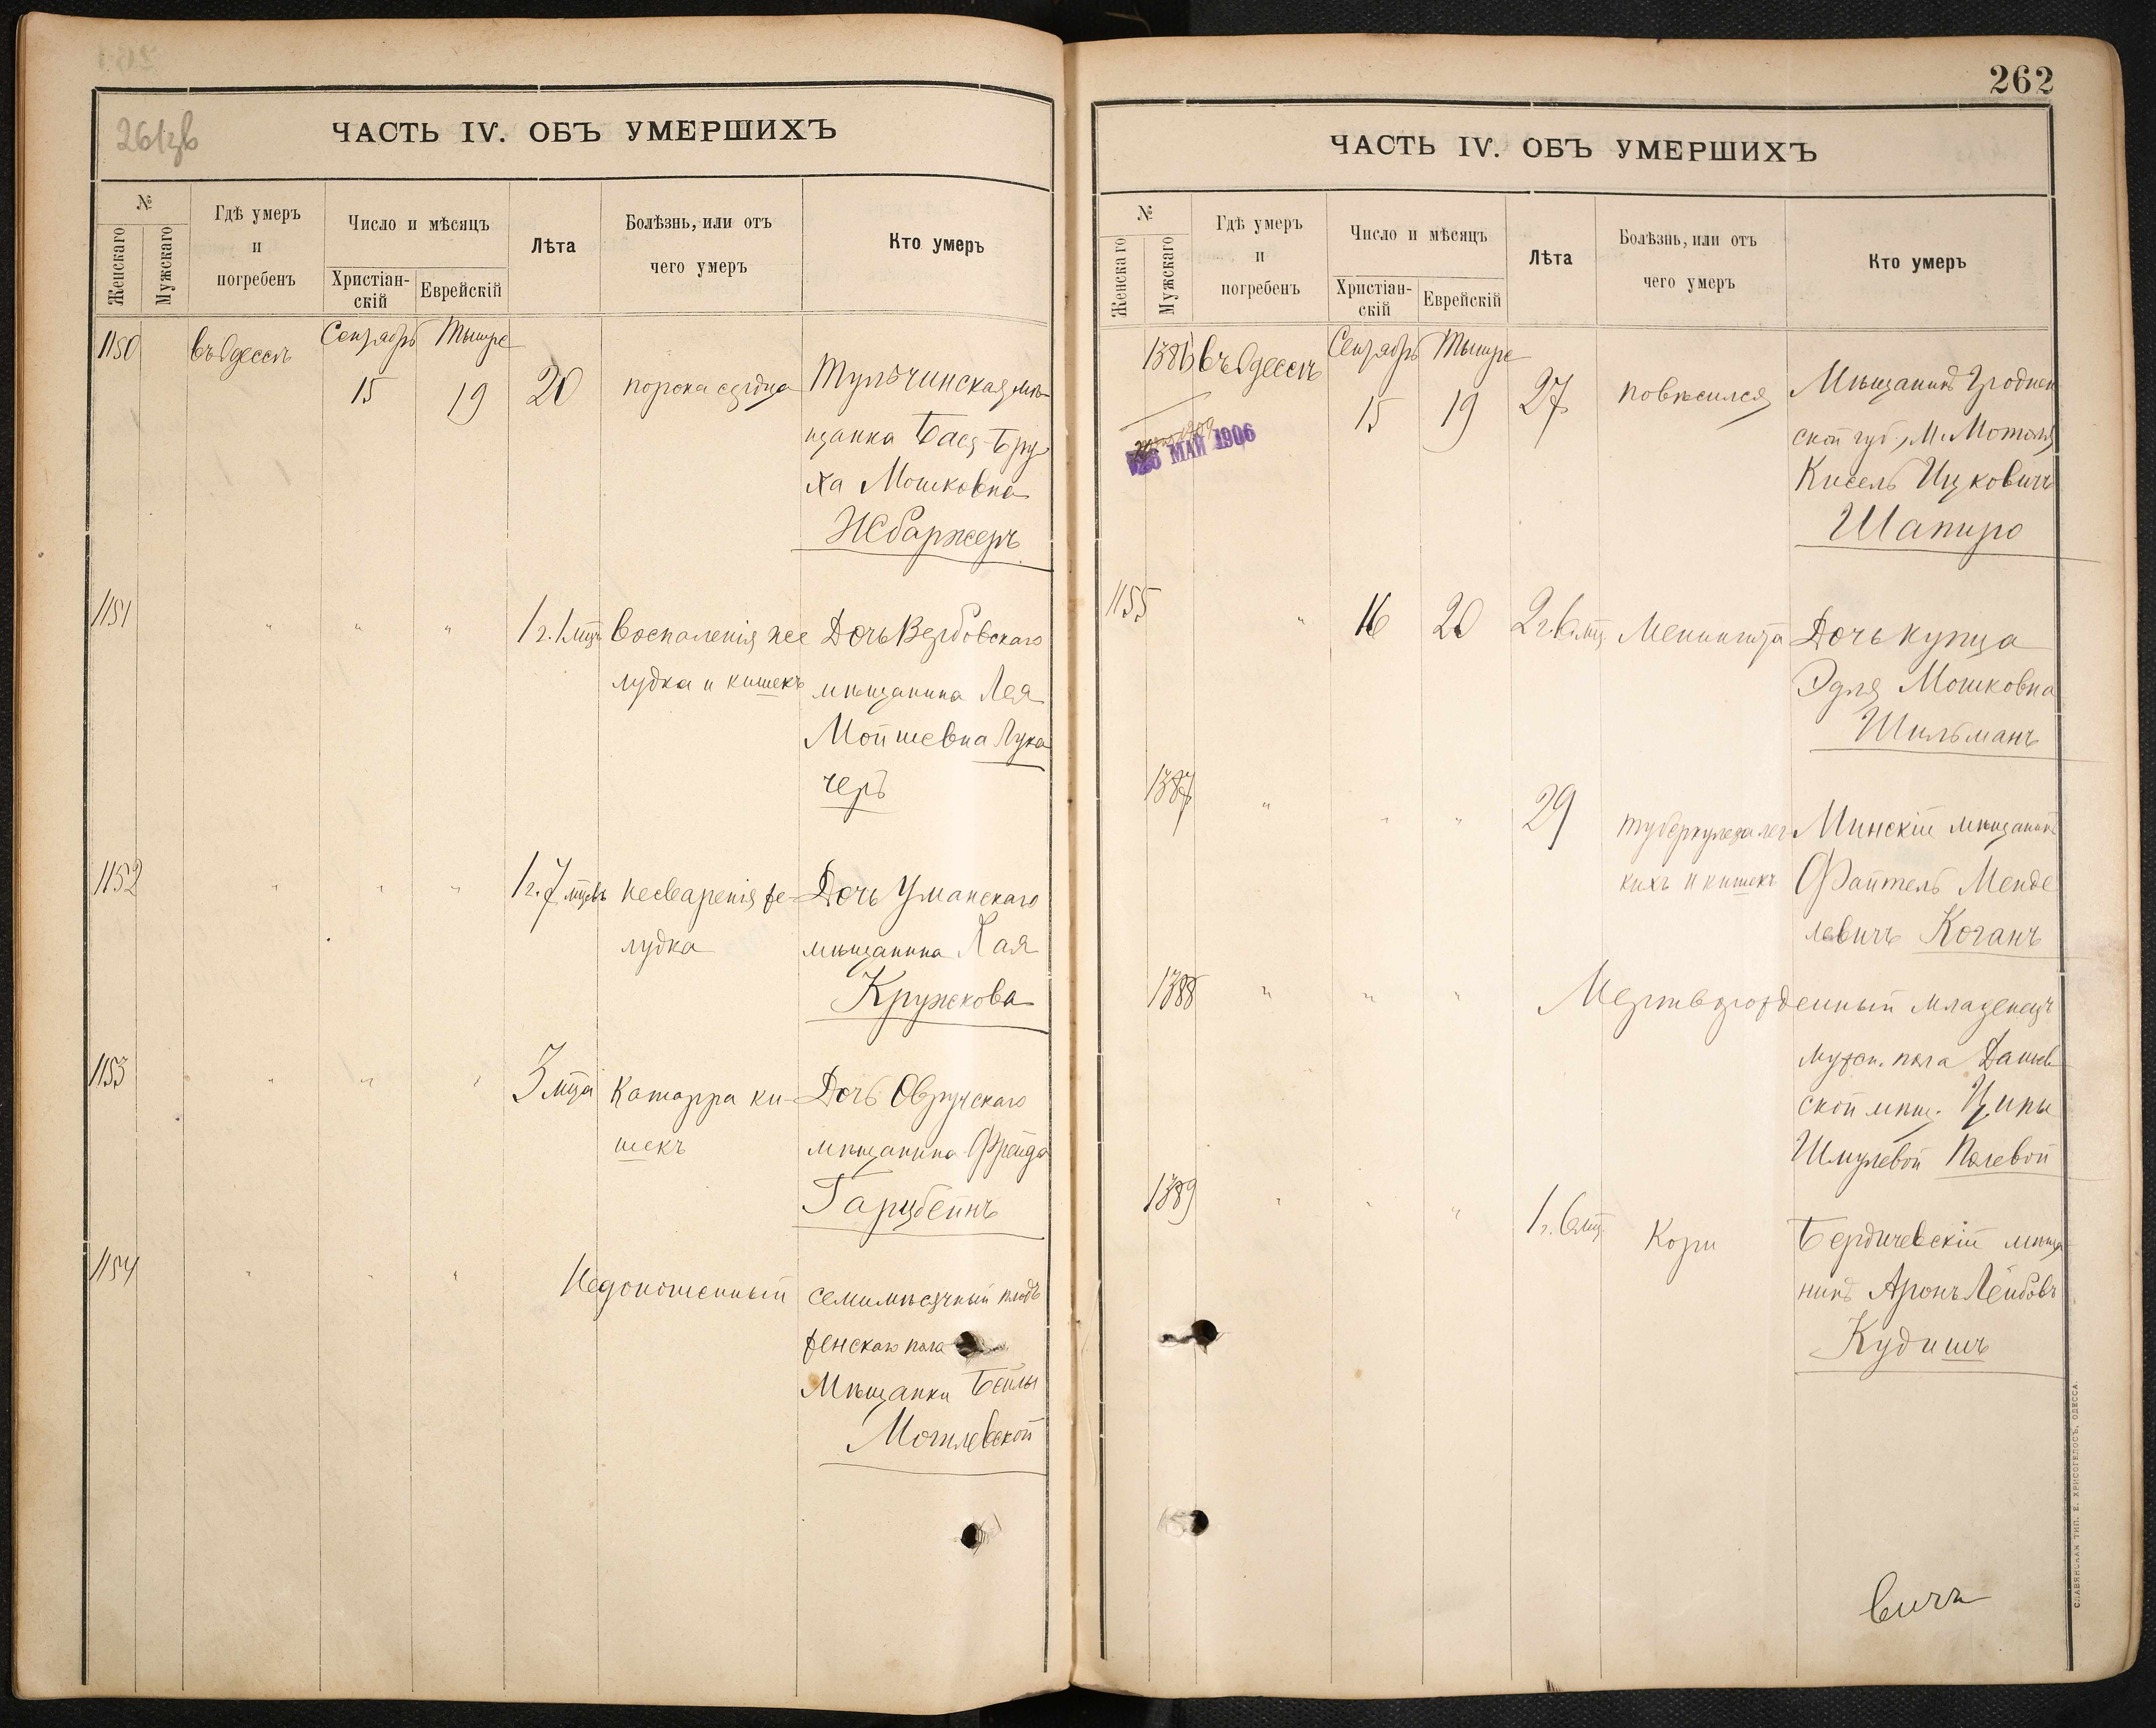 261зв
ЧАСТЬ IV. ОБЪ УМЕРШИХЪ
№
Женскаго
Мужскаго
Гдѣ умеръ
и
погребенъ
Число и мѣсяцъ
Христіан-
скій
Еврейскій
Лѣта
Болѣзнь, или отъ
чего умеръ
Кто умеръ
1150 въ Одессѣ Сентябрь Тышре
15 19 20 порока сердца Тульчинская мѣ-
щанка Бася-Бру-
ха Мошковна
1151 " " " 1 г. 1 мцъ Воспаленія же Дочь Вербовскаго
лудка и кишекъ мѣщанина Лея
Мойшевна Лука
черъ
1152 " " " 1 г. 7 мцевъ несваренія же- Дочь Уманскаго
лудка мѣщанина Хая
Кружкова
1153 " " " 3 мца Катарра ки- Дочь Овручскаго
шекъ мѣщанина Фрейда
Гарцбейнъ
1154 " " " Недоношенный семимѣсячный плодъ
женскаго пола
Мѣщанки Бейлы
Могилевской
262
ЧАСТЬ IV. ОБЪ УМЕРШИХЪ
№
Женскаго
Мужскаго
Гдѣ умеръ
и
погребенъ
Число и мѣсяцъ
Христіан-
скій
Еврейскій
Лѣта
Болѣзнь, или отъ
чего умеръ
Кто умеръ
1386 въ Одессѣ Сентябрь Тышре
15 19 27 повѣсился Мѣщанинъ Гроднен
ской губ., М. Мотоля
МАЙ 1906
Кисель Ицковичъ
Шапиро
1155 " 16 20 2 г. 6 мц Менингита Дочь купца
Эдля Мошковна
Шильманъ
1387 " " " 29 туберкулеза лег Минскій мѣщанинъ
кихъ и кишекъ Файтель Менде
левичъ Коганъ
1388 " " " Мертворожденный младенецъ
мужск. пола Дашев
ской мѣщ. Ципы
Шмулевой Полевой
1389 " " " 1 г. 6 мц Кори Бердичевскій мѣща
нинъ Аронъ Лейбовъ
Кудишъ
вичъ
СЛАВЯНСКАЯ ТИП. Е. ХРИСОГЕЛОСЪ, ОДЕССА.